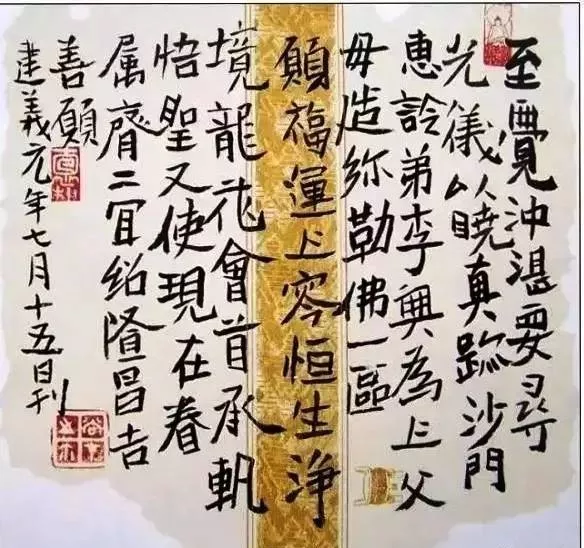 至覺沖湛要尋
光儀以曉真跡沙門
惠詮弟李興為上父
毋造弥勒佛一區
願福運上容恒生淨
境龍花會首承軌
悟聖又使現在眷
属齊二宜紹隆昌吉
善願
建義元年七月十五日刊